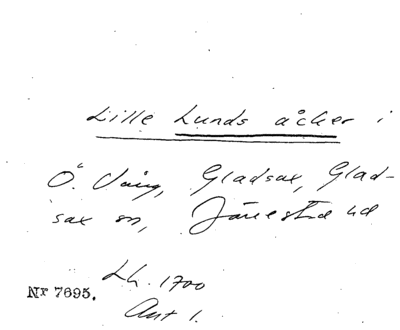 Lille Lunds åcker i
Ö. Vång, Gladsax, Glad-
sax sn, Järrestad hd
Lh. 1700
Nr 7695.
Akt 1.